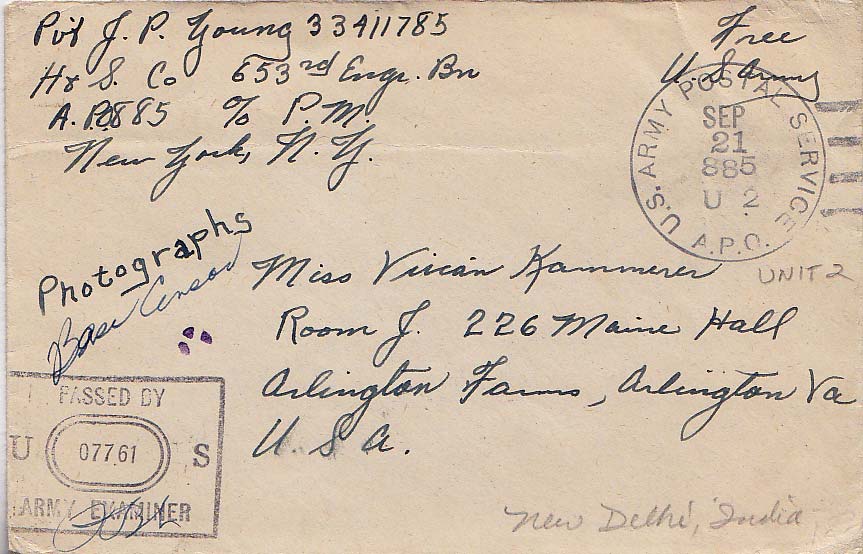 Pvt J. P. Young 33411785
Hq S. Co 653rd Engr. Bn
A.P.O 885 % P.M.
New York, N.Y.
Free
U.S Army
U.S. ARMY POSTAL SERVICE
SEP
21
885
U 2
A.P.O.
UNIT 2
Photographs
Base Censor
Miss Vivian Kammerer
Room J. 226 Maine Hall
Arlington Farms, Arlington Va
U. S. A.
PASSED BY
U 07761 S
ARMY EXAMINER
New Delhi, India